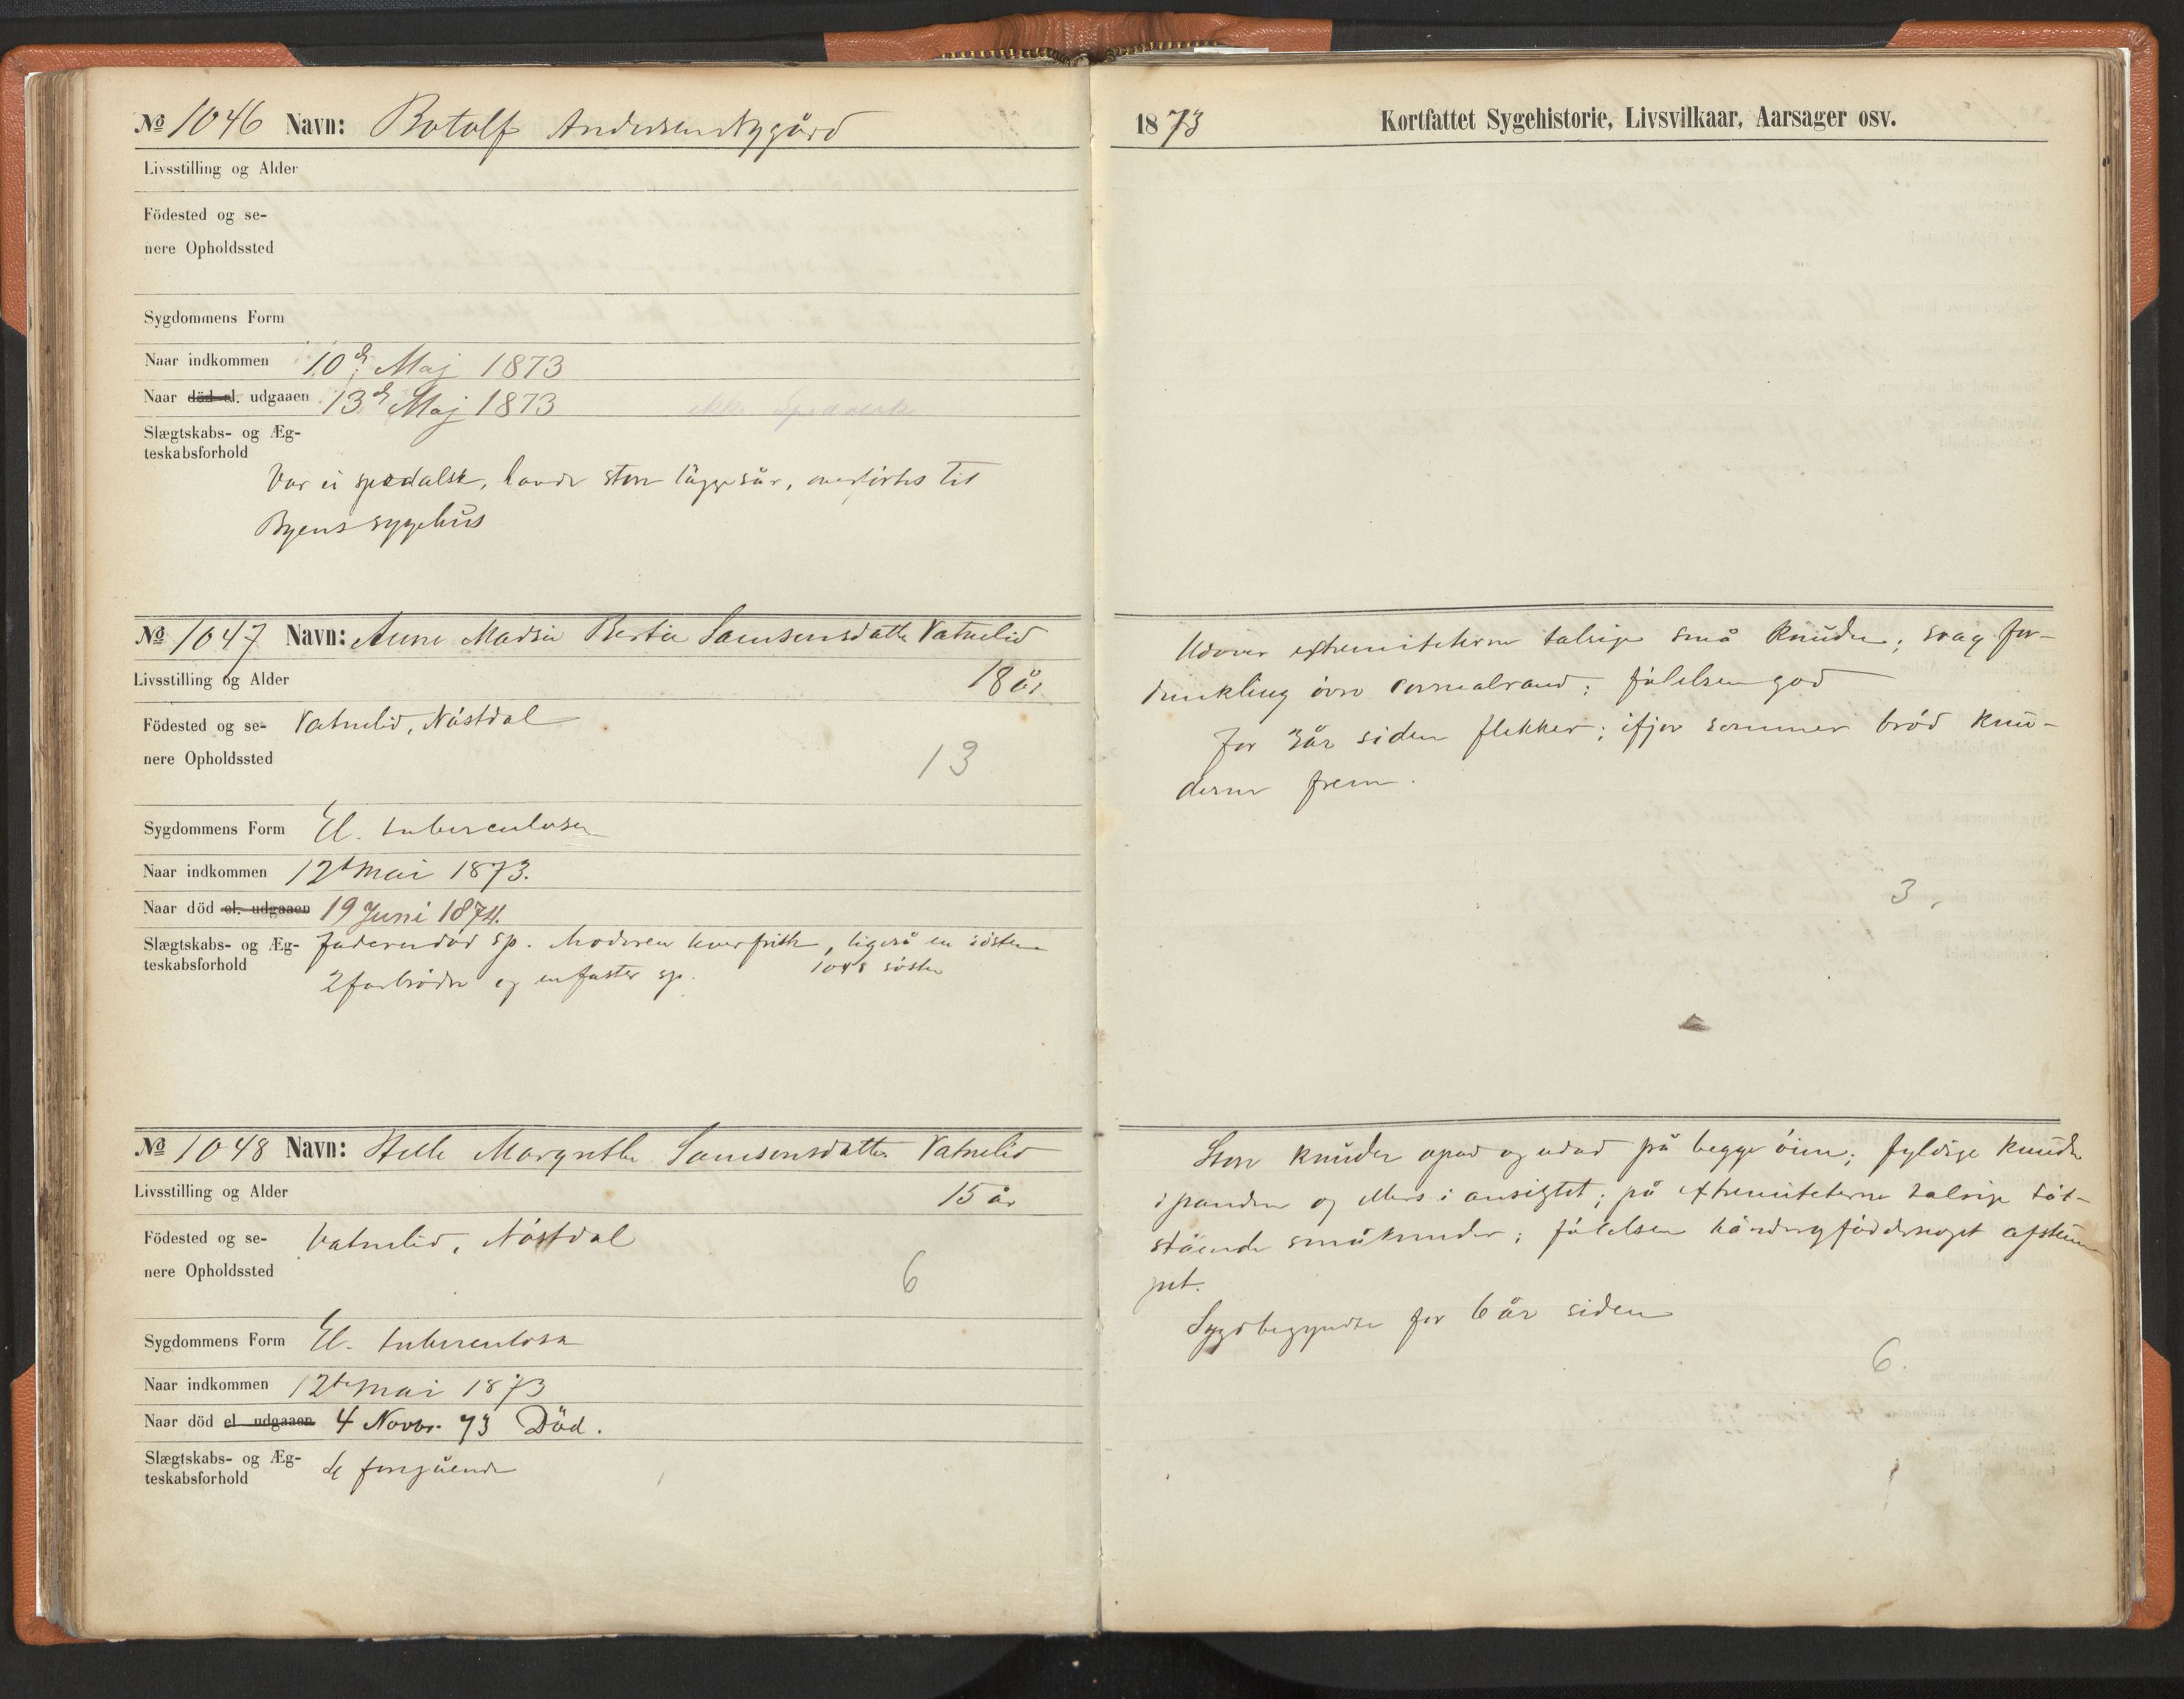 No 1046 Navn: Botolf Andersen Nygård
Livsstilling og Alder
Födested og se-
nere Opholdssted
Sygdommens Form
Naar indkommen 10de Maj 1873
Naar död el. udgaaen 13de Maj 1873 ikke Spedalsk
Slægtskabs- og Æg-
teskabsforhold
Var ei spedalsk, havde store läggesår, overførtes til
Byens sygehus
No 1047 Navn: Anne Marsia Bertia Samsonsdatter Vatnelid
Livsstilling og Alder 18 år
Födested og se- Vatnelid, Nöstdal
nere Opholdssted 13
Sygdommens Form El. tuberculosa
Naar indkommen 12te Mai 1873.
Naar död el. udgaaen 19 Juni 1874.
Slægtskabs- og Æg-
teskabsforhold
Faderen död sp. Moderen lever frisk, ligeså en söster
2 farbrödre og en faster sp. 1048 söster
No 1048 Navn: Margrethe Samsonsdatter Vatnelid
Livsstilling og Alder 15 år
Födested og se- Vatnelid, Nöstdal
nere Opholdssted 6
Sygdommens Form El. tuberculosa
Naar indkommen 12te Mai 1873
Naar död el udgaaen 4 Novbr. 73 Död.
Slægtskabs- og Æg-
teskabsforhold
foregående
1873 Kortfattet Sygehistorie, Livsvilkaar, Aarsager osv.
Udover extremiteterne talrige små knuder; svag for-
dunkling övre cornealrand; fölelsen god
For 3 år siden flekker; ifjor sommer bröd knu-
derne frem.
3.
Store knuder opad og udad på begge öine; fyldige knuder
i panden og i ansigtet; på extremiteterne talrige tät-
stående småknuder; fölelsen händer og födder noget afstum-
pet.
Sygd begyndte for 6 år siden
6.